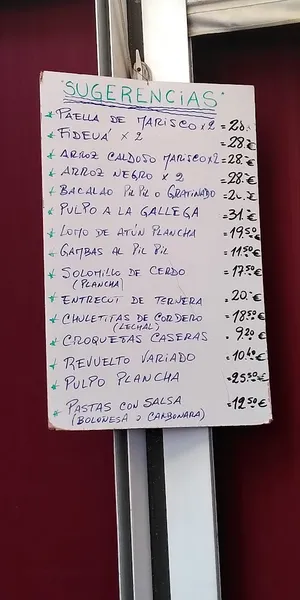 "SUGERENCIAS"
* PAELLA DE MARISCO x 2 = 28.-
* FIDEUÁ x 2 = 28.-€
* ARROZ CALDOSO MARISCO x 2 = 28.-€
* ARROZ NEGRO x 2 = 28.-€
* BACALAO PIL PIL O GRATINADO €
* PULPO A LA GALLEGA = 31.-€
* LOMO DE ATÚN PLANCHA = 19.50€
* GAMBAS AL PIL PIL = 11.50€
* SOLOMILLO DE CERDO = 17.50€
(PLANCHA)
* ENTRECOT DE TERNERA 20.-€
* CHULETITAS DE CORDERO = 18.50€
(LECHAL)
* CROQUETAS CASERAS . 9.20€
* REVUELTO VARIADO = 10.40€
* PULPO PLANCHA = 25.50€
* PASTAS CON SALSA = 12.50€
(BOLOÑESA O CARBONARA)